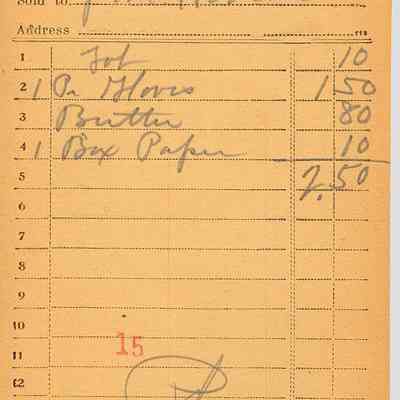 Sold to
Address
1 Tob 10
2 1 Pr Gloves 1 50
3 Butter 80
4 1 Box Paper 10
5 2.50
6
7
8
9
10
15
11
12